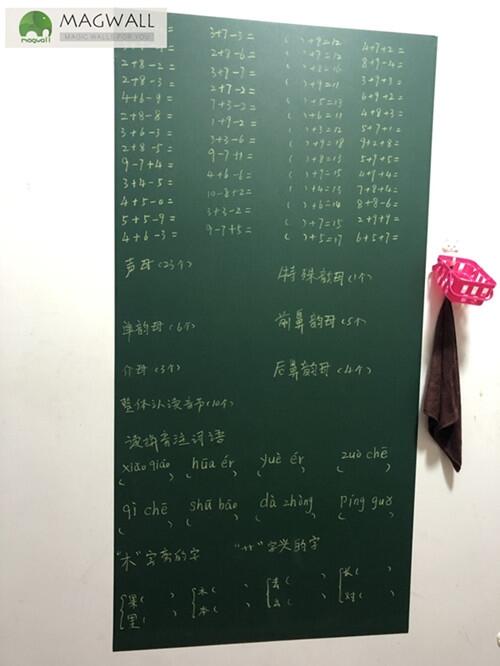 MAGWALL
MAGIC WALLS FOR YOU
magwall
3+7-3=
2+8-2= 2+8-6= ( )+7=12 4+7+2=
2+8-3= 3+7-7= 8+9-4=
4+6-9= 2+7-2= ( )+9=11 3+9+3=
2+8-8= 7+3-2= ( )+5=13 6+9+2=
3+6-3= 1+9-2= ( )+6=11 4+8+3=
2+8-5= 3+3-6= ( )+3=12 5+7+1=
9-7+4= 9-7+1= ( )+9=18 9+2+8=
3+4-5= 4+6-6= ( )+8=13 5+7+5=
4+5-0= 10-8+2= ( )+7=15 4+9+4=
5+5-9= 3+3-2= ( )+4=13 7+8+4=
4+6-3= 9-7+5= ( )+6=14 8+8-6=
( )+7=15 2+9+9=
( )+5=17 6+5+7=
声母(23个) 特殊韵母(1个)
单韵母(6个) 前鼻韵母(5个
介母(3个) 后鼻韵母(4个)
整体认读音节(10个)
读拼音注词语
xiǎo qiáo huā ér yuè ér zuò chē
( ) ( ) ( ) ( )
qì chē shū bāo dà zhòng píng guǒ
( ) ( ) ( ) ( )
"木"字旁的字 "艹"字头的字
果( ) 木( ) 去( ) 长( )
里( ) 本( ) 云( ) 对( )